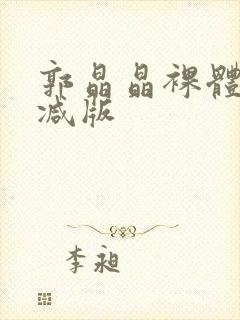 郭晶晶裸體
减版
李昶